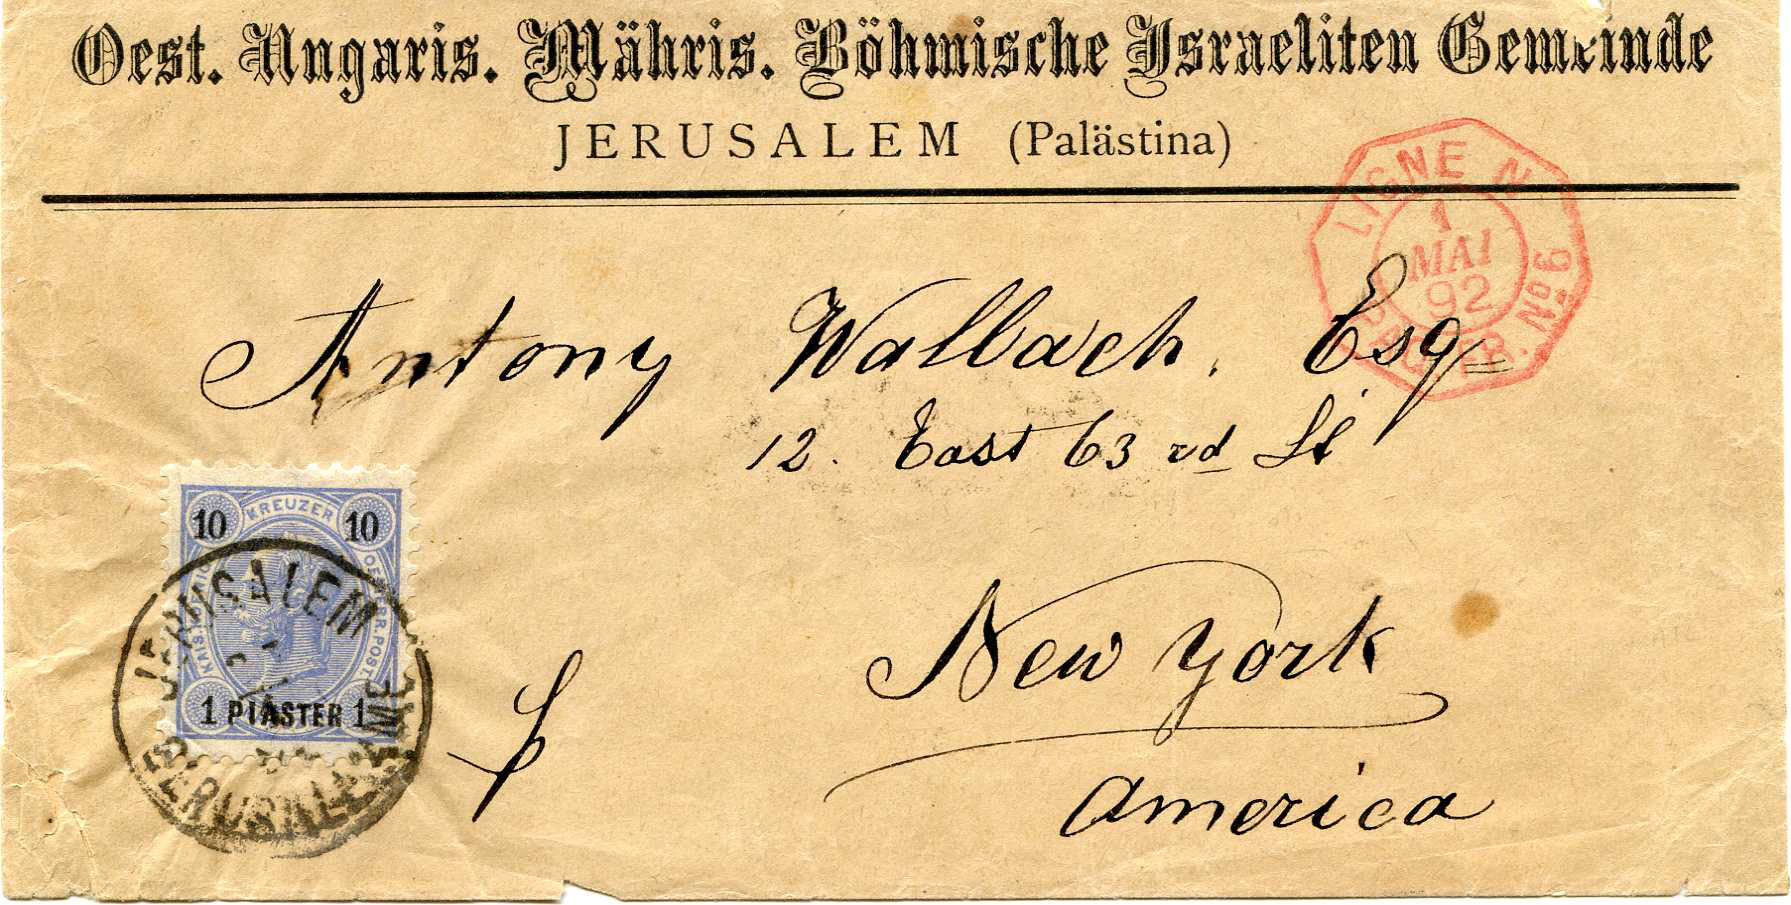 Oest. Ungaris. Mähris. Böhmische Israeliten Gemeinde
JERUSALEM (Palästina)
LIGNE N
PAQ. FR. No 6
1
MAI
92
Antony Wallach, Esq
12. East 63 rd St
New York
America
KREUZER
10 10
KAIS. KÖNIGL. OESTERR. POST.
1 PIASTER 1
JERUSALEM
GERUSALEMME